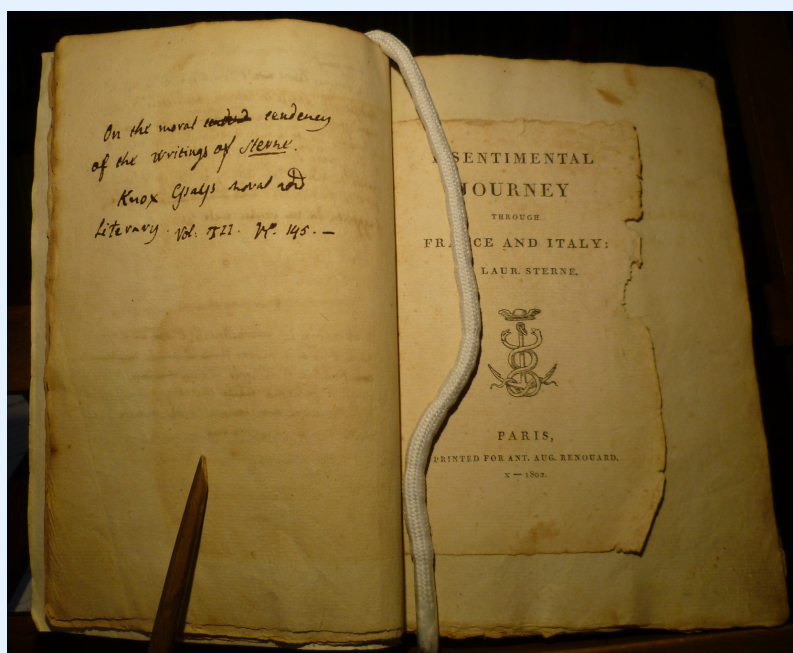 On the moral tendency
of the writings of Sterne.
Knox Essays moral and
Literary. Vol: III. Nº. 145. —
SENTIMENTAL
JOURNEY
THROUGH
FRANCE AND ITALY:
LAUR. STERNE.
PARIS,
PRINTED FOR ANT. AUG. RENOUARD.
X — 1802.